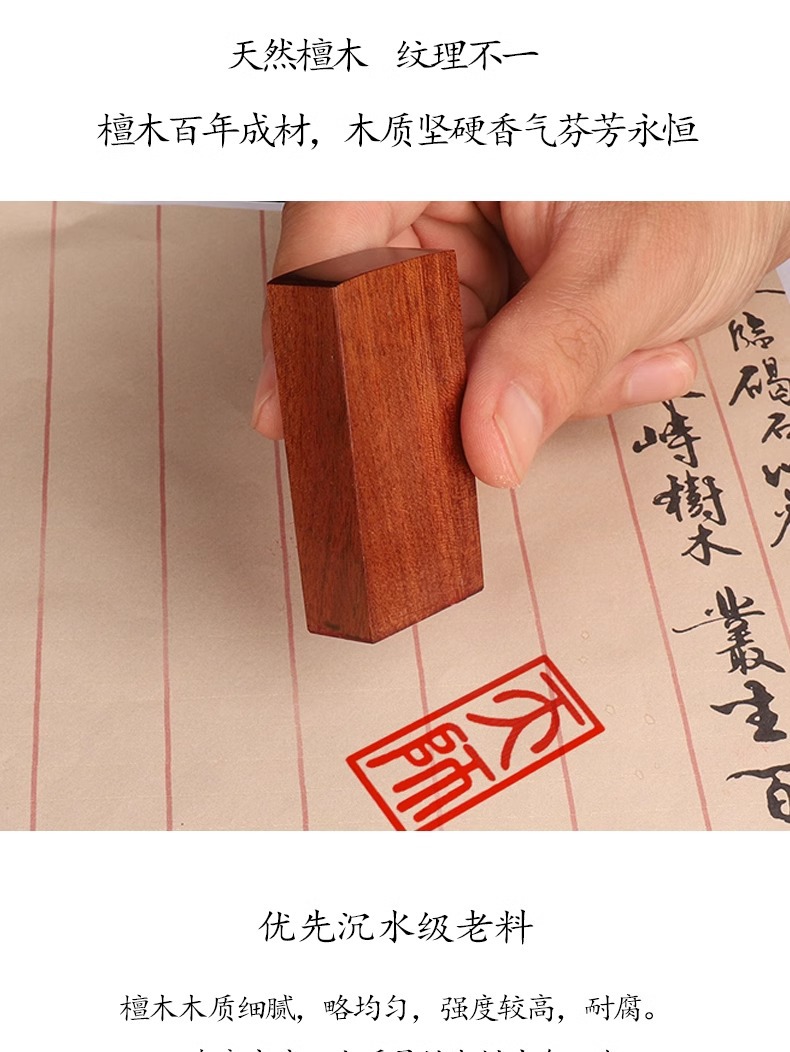 天然檀木 纹理不一
檀木百年成材，木质坚硬香气芬芳永恒
临碣石以
峙樹木
叢生百
天師
优先沉水级老料
檀木木质细腻，略均匀，强度较高，耐腐。